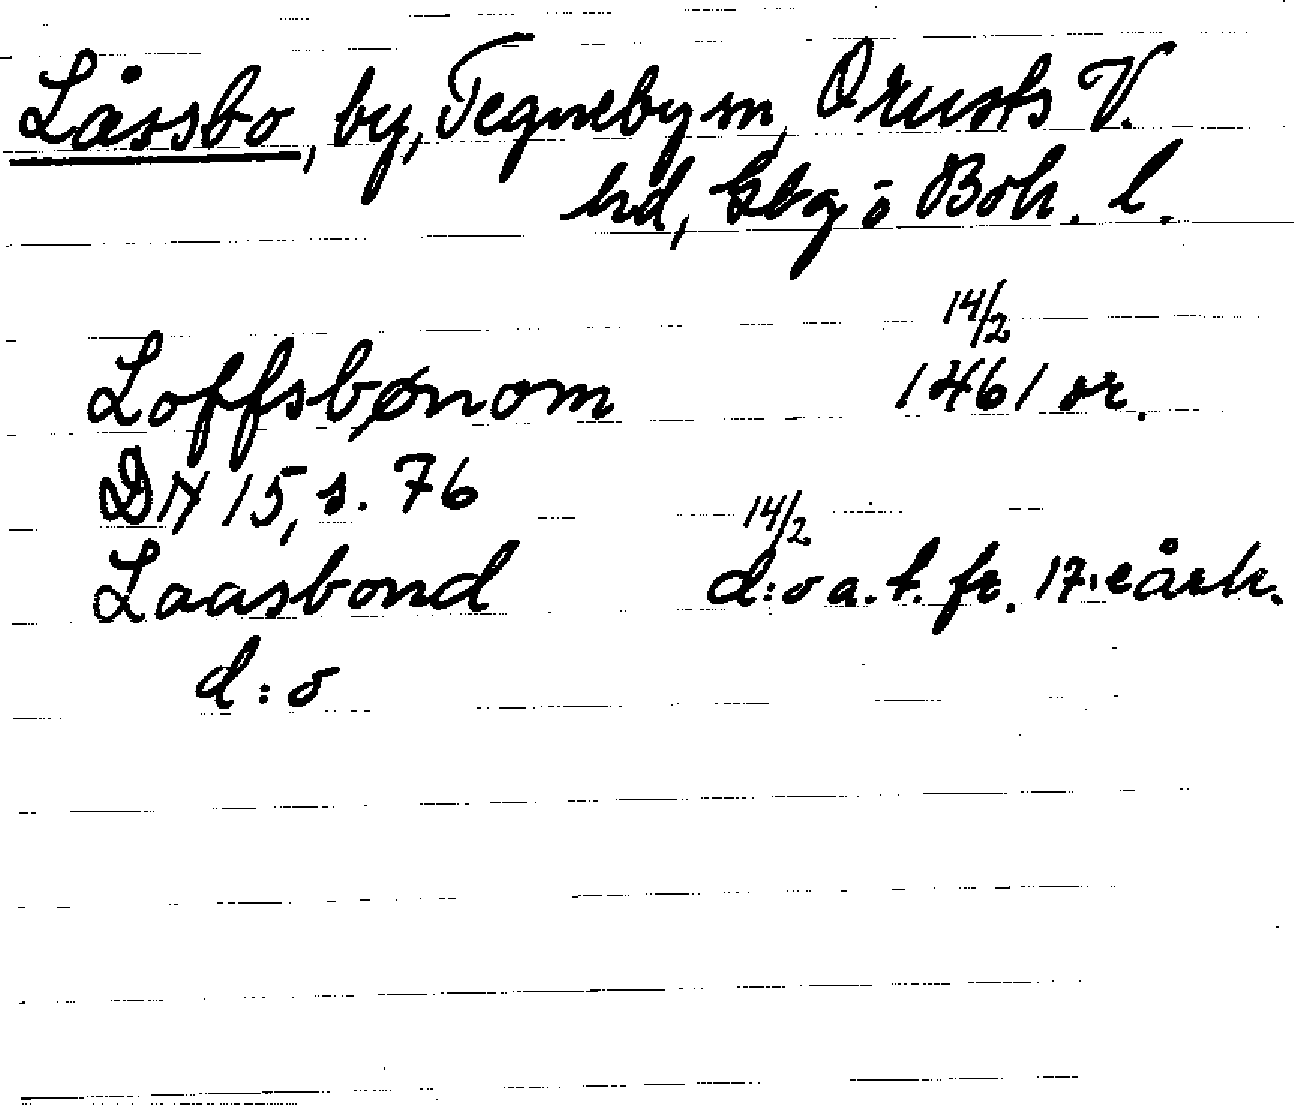 Låssbo, by, Tegneby sn, Orusts V.
hd, Gbg o Boh. l.
Loffsbønom 14/2 1461 or.
DN 15, s. 76
Laasbond 14/2 d:o a.t. fr. 17:e årh.
d:o